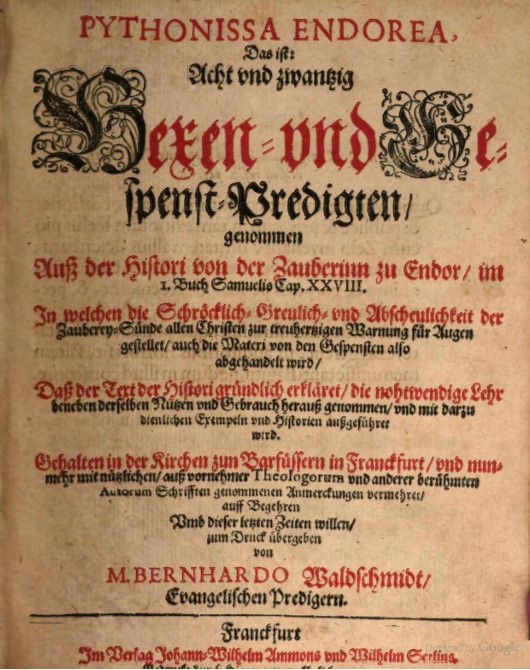 PYTHONISSA ENDOREA,
Das ist:
Acht vnd zwantzig
Hexen- vnd Ge-
spenst-Predigten/
genommen
Auß der Histori von der Zauberinn zu Endor/ im
1. Buch Samuelis Cap. XXVIII.
In welchen die Schröcklich- Greulich- vnd Abscheulichkeit der
Zauberey-Sünde allen Christen zur treuhertzigen Warnung für Augen
gestellet/ auch die Materi von den Gespensten also
abgehandelt wird/
Daß der Text der Histori gründlich erkläret/ die nohtwendige Lehr
beneben derselben Nützen vnd Gebrauch herauß genommen/ vnd mit darzu
dienlichen Exempeln vnd Historien außgeführet
wird.
Gehalten in der Kirchen zun Barfüssern in Franckfurt/ vnd nun-
mehr mit nützlichen/ auß vornehmer Theologorum vnd anderer berühmten
Autorum Schrifften genommenen Anmerckungen vermehret/
auff Begehren
Vmb dieser letzten Zeiten willen/
zum Druck übergeben
von
M. BERNHARDO Waldschmidt/
Evangelischen Predigern.
Franckfurt
Im Verlag Johann-Wilhelm Ammons vnd Wilhelm Serlins.
Google